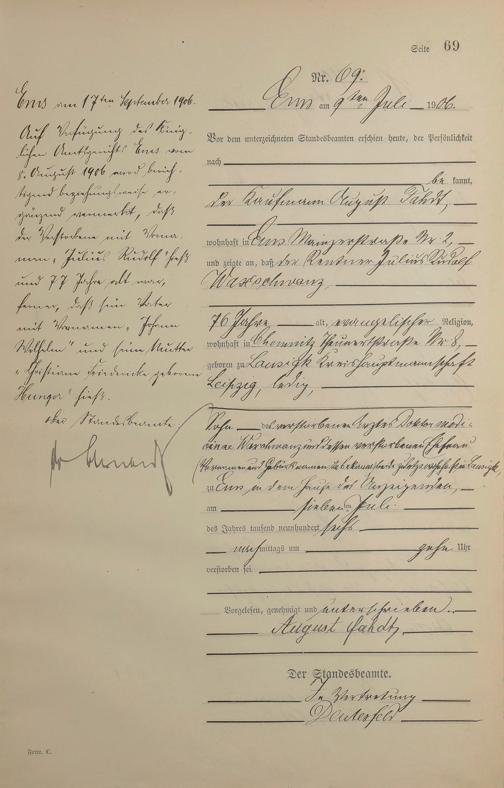 Seite 69
Nr. 69.
Ems am 9ten Juli 1906.
Vor dem unterzeichneten Standesbeamten erschien heute, der Persönlichkeit
nach
be kannt,
der Kaufmann August Fahdt,
wohnhaft in Ems Mainzerstraße Nr 2,
und zeigte an, daß der Rentner Julius Rudolf
76 Jahre alt, evangelischer Religion,
wohnhaft in Chemnitz Nr 8,
geboren zu Kreishauptmannschaft
Leipzig, ledig,
Sohn des verstorbenen Arztes Doktor medi-
cinae und dessen verstorbenen Ehefrau
zu Ems in dem Hause des Anzeigenden,
am sieben Juli
des Jahres tausend neunhundert sechs
nachmittags um zehn Uhr
verstorben sei.
Vorgelesen, genehmigt und unterschrieben.
August Fahdt
Der Standesbeamte.
In Vertretung
Ems am 17ten September 1906.
Auf Verfügung des König-
lichen Amtsgerichts Ems vom
8. August 1906 wird berich-
tigend beziehungsweise er-
gänzend vermerkt, daß
der Verstorbene mit Vorna-
men "Julius Rudolf" hieß
und 77 Jahre alt war,
ferner, daß sein Vater
mit Vornamen "Johann
Wilhelm" und seine Mutter
"Christiane Friedericke geborene
hieß.
der Standesbeamte
Form. C.